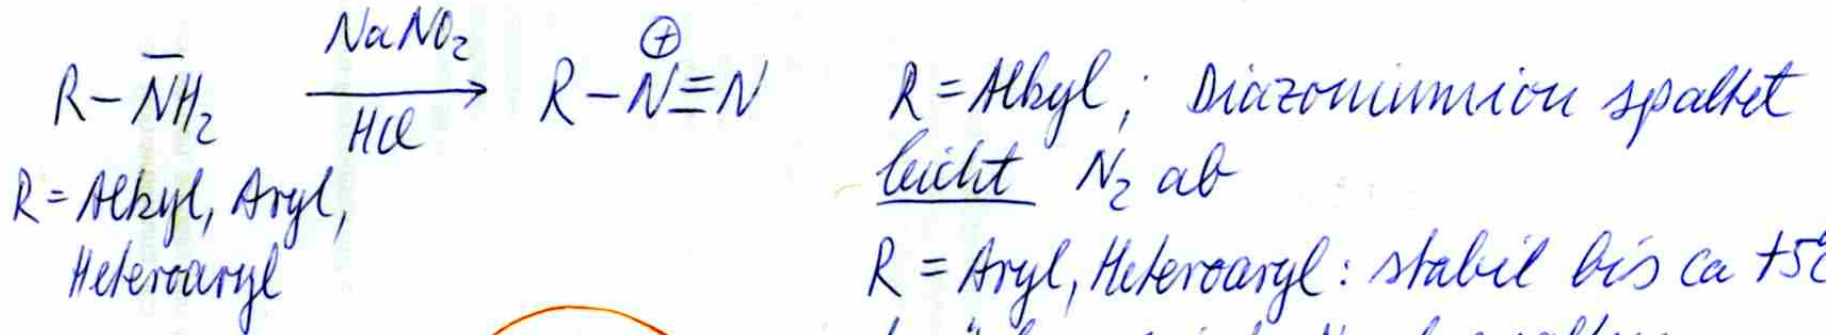 R–NH₂ NaNO₂ HCl → R–N⊕≡N
R = Alkyl, Aryl,
Heteroaryl
R = Alkyl ; Diazoniumion spaltet
leicht N₂ ab
R = Aryl, Heteroaryl : stabil bis ca +5°